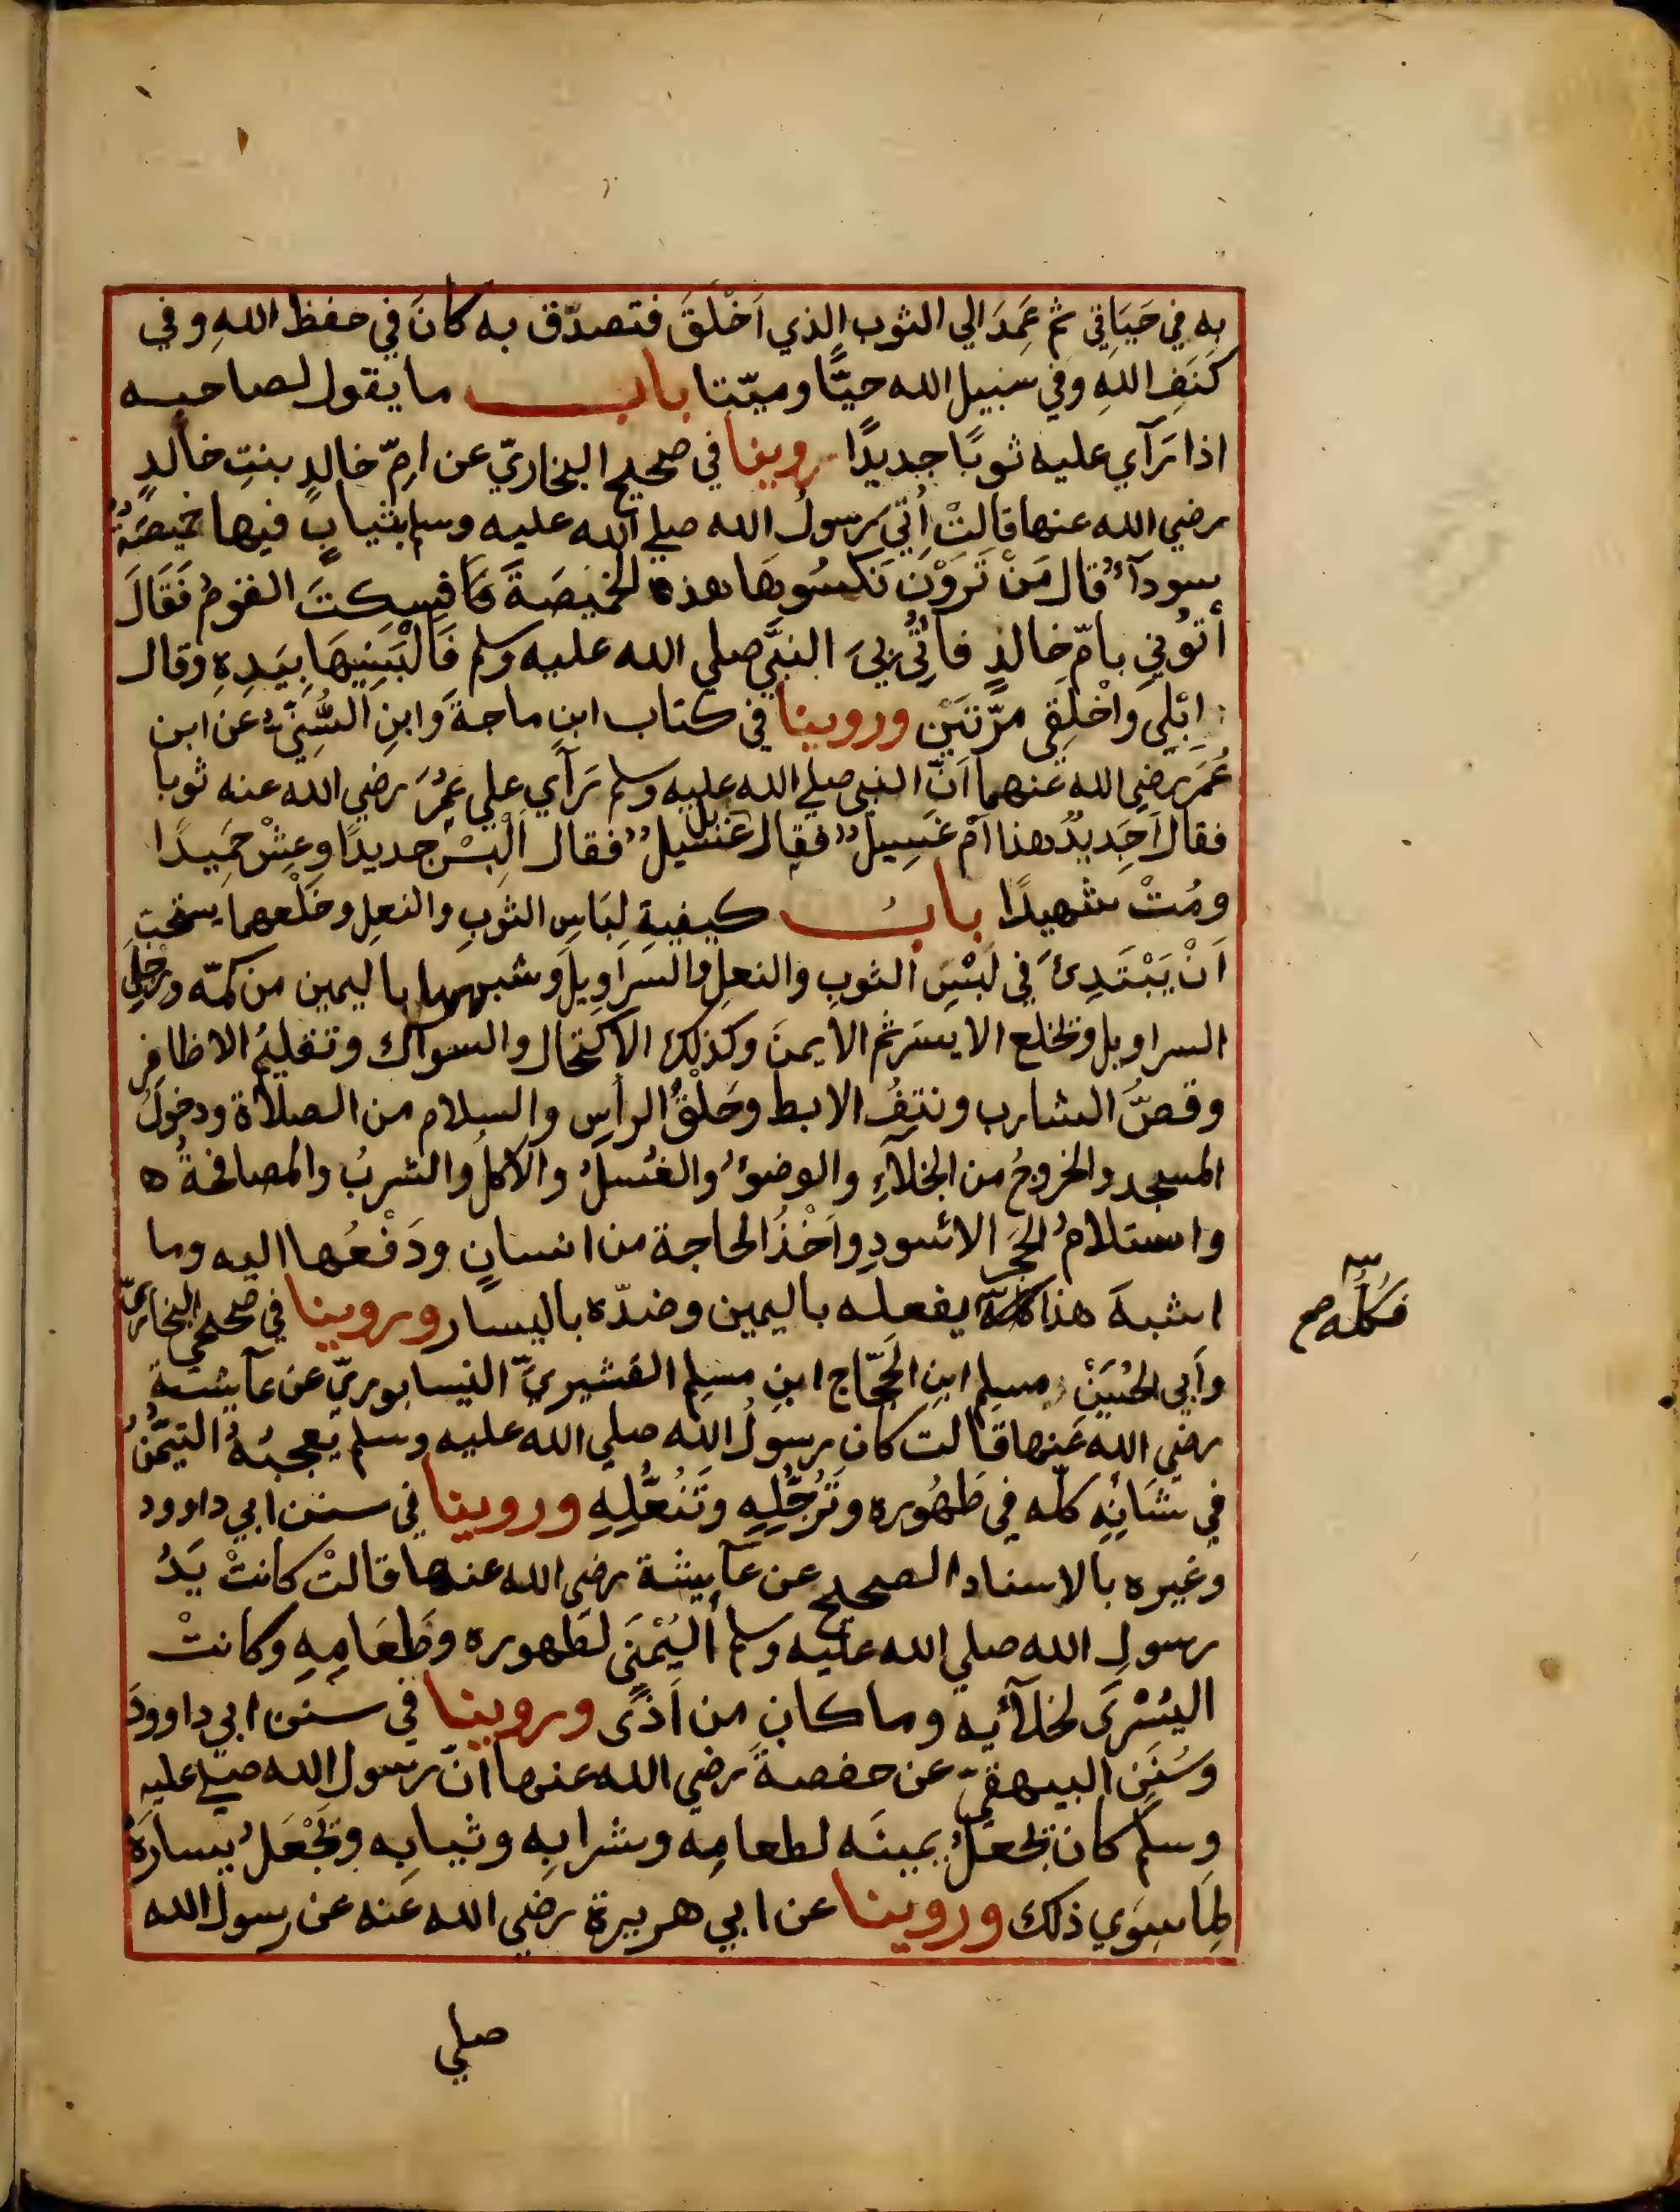 به في حَيَاتي ثم عَمِدَ الي الثوب الذي اَخْلَقَ فتصدّق به كانَ في حفظ اللهِ وفي
كَنَفِ اللهِ وفي سبيل الله حيًّا وميّتا باب ما يقول لصاحبه
اذا رَآي عليه ثوبًا جديدًا روينا في صحيح البخاريّ عن امِّ خالدٍ بنتِ خالدٍ
رضي الله عنها قالتْ اُتِيَ رسولُ الله صلي الله عليه وسلم بثيابٍ فيها خميصَةٌ
سودآءُ قال مَنْ تَرَوْنَ نَكسُوهَا هذه الخميصَةَ فَاَسكتَ القومُ فَقَالَ
أتوُني بامّ خالدٍ فاُتِي بيَ النبَّي صلي الله عليه وسلم فَاَلْبَسَنِيهَا بِيَدِهِ وقال
ابْلِي واَخْلِقِي مرَّتَيْن وروينا في كتاب ابنِ ماجةَ وَابنِ السُّنيِّ عن ابن
عُمَرَ رضي الله عنهما اَنّ النبي صلي الله عليه وسلم رَآي علي عُمَرَ رضي الله عنه ثوبا
فقال اَجَدِيدٌ هذا اَمْ غَسِيلٌ فقال بل غَسيلٌ فقال اَلْبَسْ جديدًا وعِشْ حَمِيدًا
ومُتْ شهيدًا بابُ كيفيةِ لِبَاسِ الثوبِ والنعلِ وخَلْعهما يستحبّ
اَنْ يَبْتَدِئَ في لُبْسِ الثوبِ والنعلِ والسراوِيلِ وشبهها باليمين من كمّه ورِجْلي
السراويل وتخلع الايسَر ثم الايمنَ وكذلك الاكتحال والسواك وتقليمُ الاظافر
وقصُّ الشارب ونتفُ الابط وحَلْقُ الرأسِ والسلام من الصلاة ودخولُ
المسجد والخروجُ من الخلآءِ والوضوءُ والغسلُ والاكلُ والشربُ والمصافحةُ ه
واستلامُ الحَجَرِ الاسْودِ واَخْذُ الحاجة من انسانٍ ودَفْعُها اليه وما
اشبهَ هذا كلّه يفعله باليمين وضدّه باليسار وروينا في صحيحي البخاريّ
فكلُّه صح
وَاَبي الحُسَيْنِ مسلم ابنِ الحَجّاج ابنِ مسلِم القشيريّ النيسابوريّ عن عآيشة
رضي الله عنها قالت كان رسولُ الله صلي الله عليه وسلم يُعجبُهُ التيمُّنُ
في شَانِهِ كلّه في طَهُوره وتَرجُّلِهِ وتَنَعُّلِهِ وروينا في سنن ابي داوود
وغيره بالاسناد الصحيح عن عآيشة رضي الله عنها قالتْ كانتْ يَدُ
رسولِ الله صلي الله عليه وسلم اليُمْنَي لطَهوره وطَعَامِهِ وكانتْ
اليُسْرَى لخلآئه وما كان من اَذًى وروينا في سنن ابي داوودَ
وَسُنَنِ البيهقيّ عن حفصةَ رضي الله عنها انّ رسول الله صلي عليه
وسلم كان يجعلُ يمينَه لطعامِه وشرابِه وثيابِه ويَجْعَلُ يسارَهُ
لِمَا سِوَي ذلك وروينا عن ابي هريرة رضي الله عنه عن رسول الله
صلي